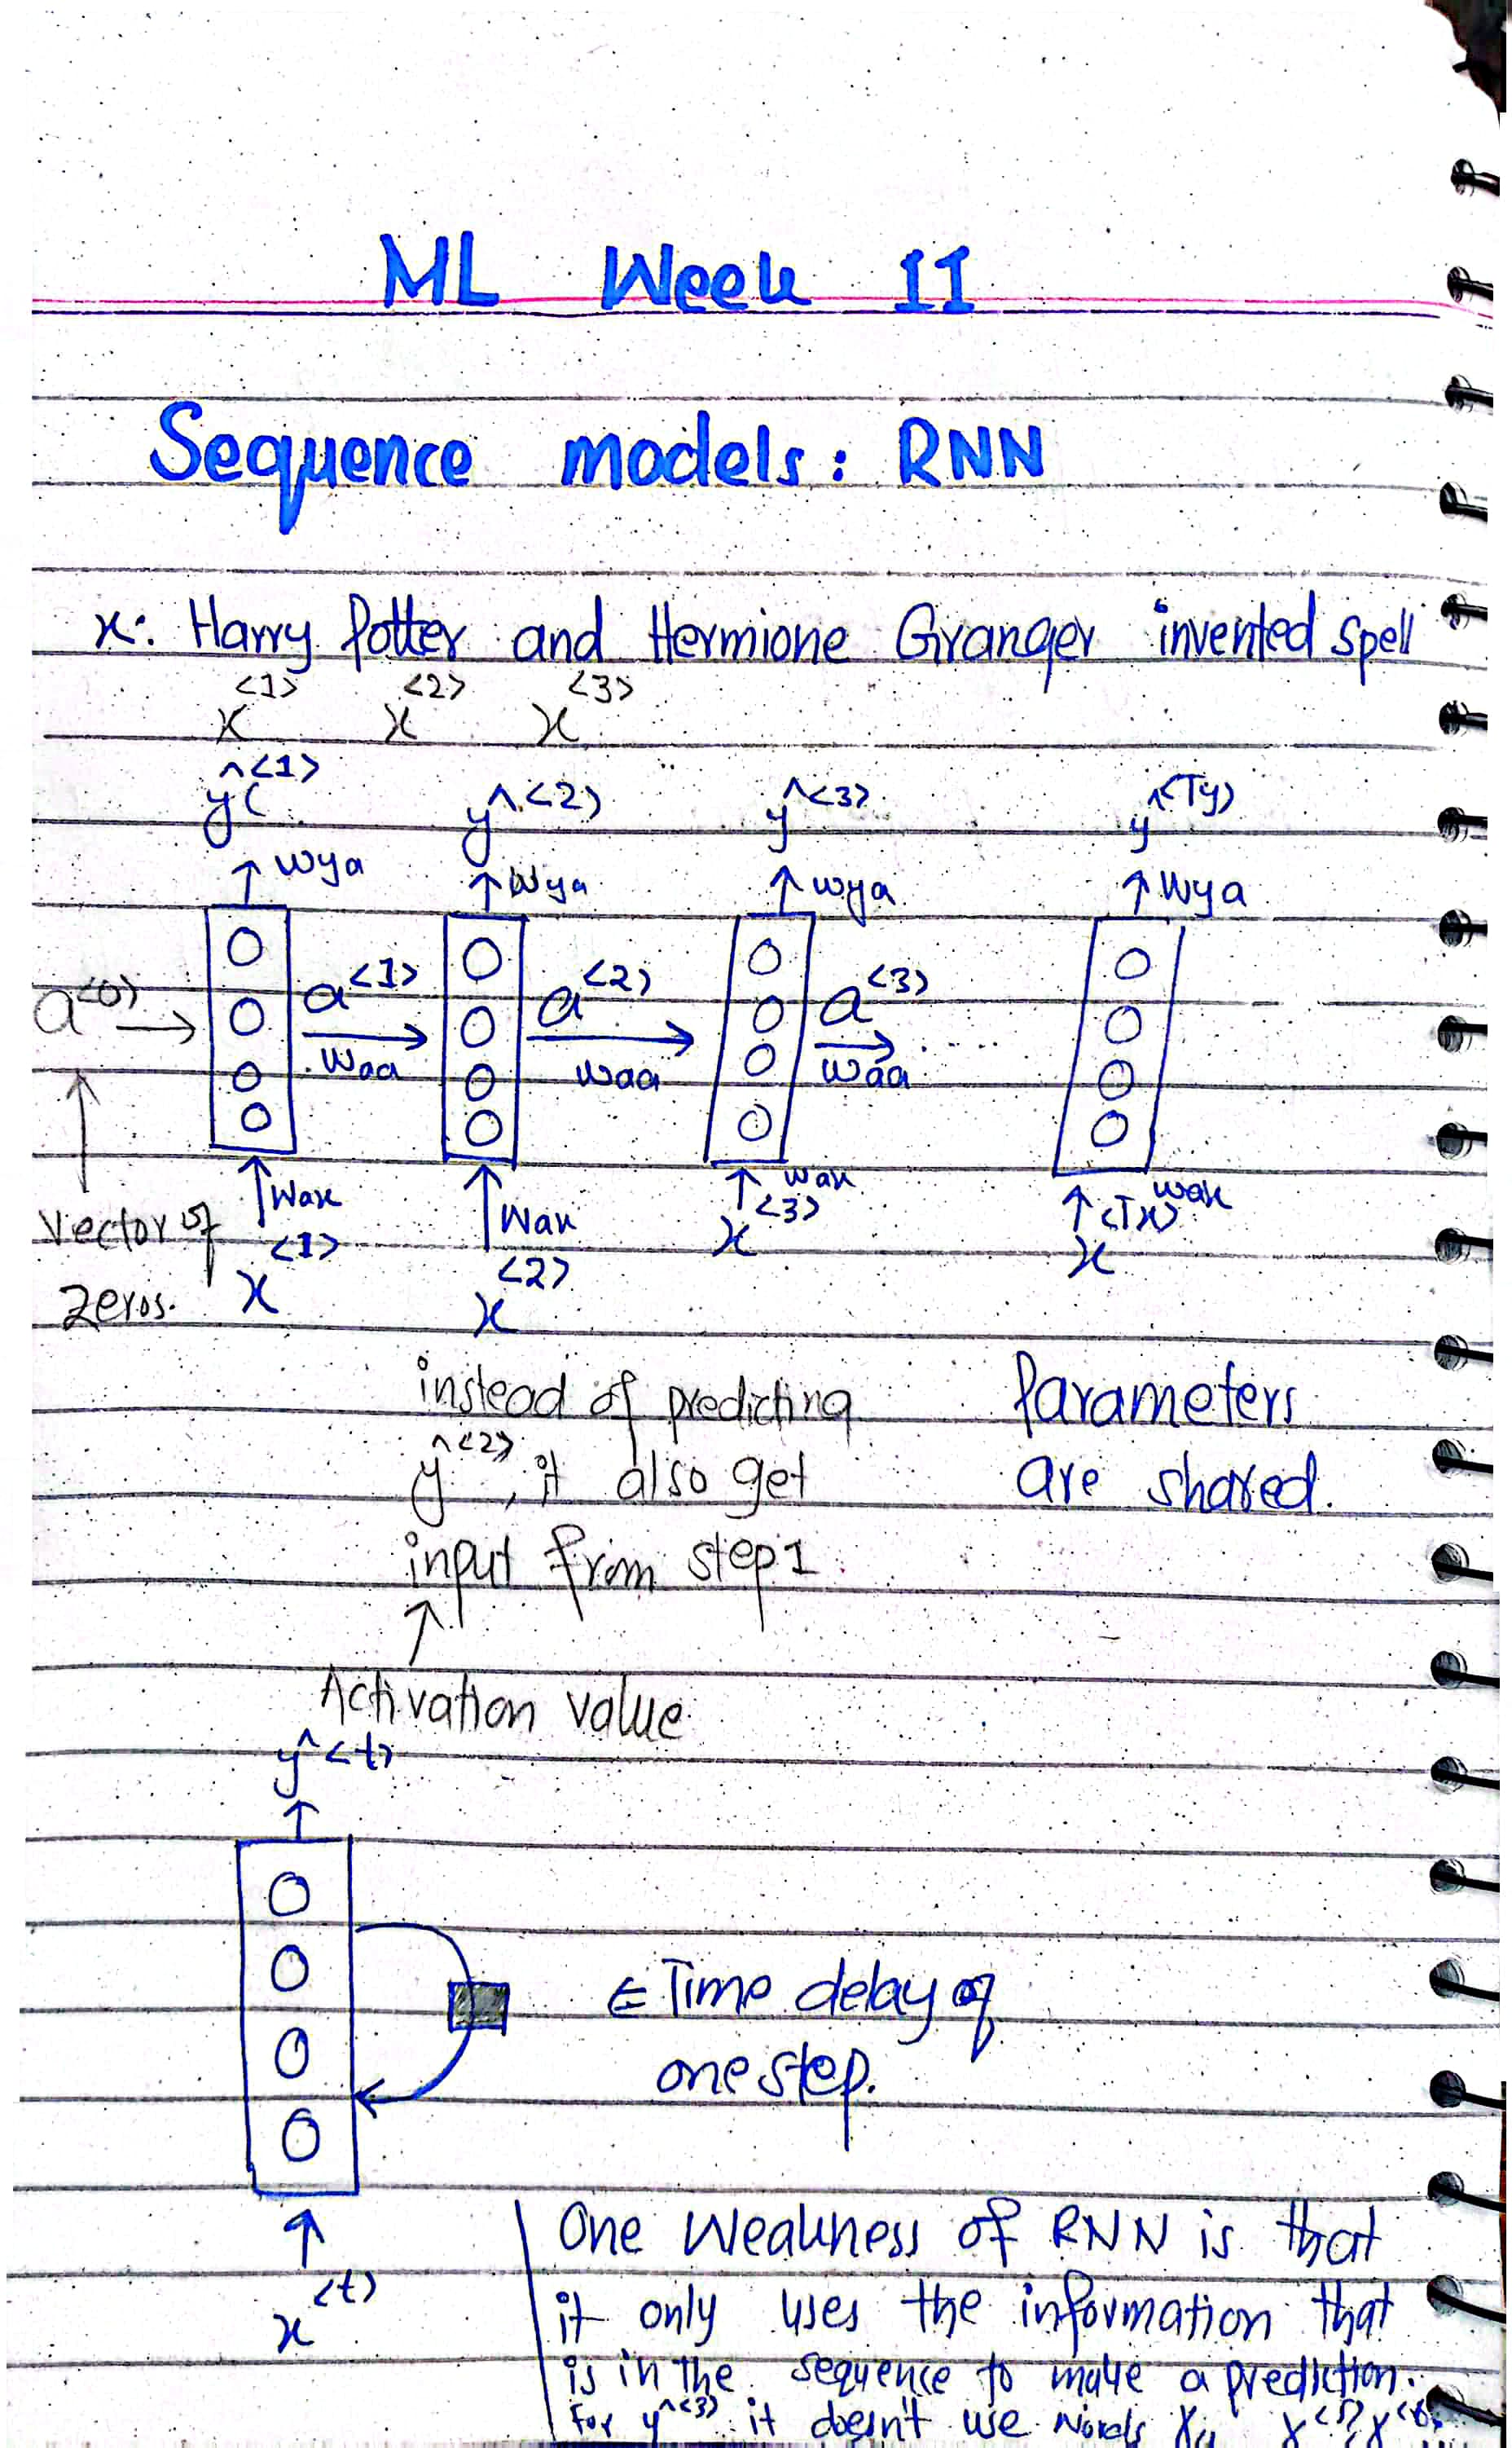 ML Week 11
Sequence models: RNN
x: Harry Potter and Hermione Granger invented spell
x<1> x<2> x<3>
ŷ<1> ŷ<2> ŷ<3> ŷ<Ty>
↑ Wya ↑ Wya ↑ Wya ↑ Wya
a<0> → a<1> → a<2> → a<3> → .....
Waa Waa Waa
↑ Wax ↑ Wax ↑ Wax ↑ Wax
Vector of
zeros.
x<1> x<2> x<3> x<Tx>
instead of predicting
ŷ<2>, it also get
input from step 1
↑
Activation value
Parameters
are shared.
ŷ<t>
↑
← Time delay of
one step.
↑
x<t>
One Weakness of RNN is that
it only uses the information that
is in the sequence to make a prediction.
For ŷ<3> it doesn't use words x4 x<5>, x<6>,